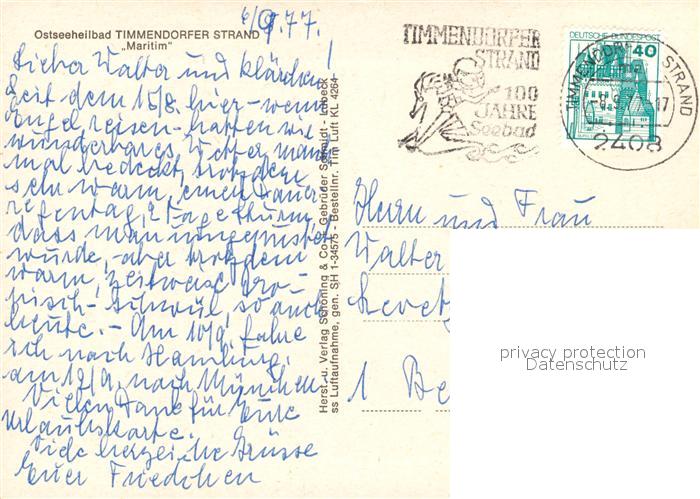 6/9.77.
Ostseeheilbad TIMMENDORFER STRAND
„Maritim"
Lieber Walter und Klärchen!
Seit dem 15/8. hier - wenn
Engel reisen - hatten wir
wunderbares Wetter, manch-
mal bedeckt, trotzdem
sehr warm, einen Dauer-
regentag, 2 Tage Sturm,
dass man
wurde, aber trotzdem
warm, zeitweise tro-
pisch - schwül, so auch
heute. - Am 10/9. fahre
ich nach Hamburg,
am 12/9. nach München.
Vielen Dank für Eure
Urlaubskarte.
Viele herzliche Grüsse
Euer Friedchen
Herst. u. Verlag Schöning & Co. + Gebrüder Schmidt - Lübeck
ss Luftaufnahme, gen. SH 1-34575 - Bestellnr. Tim Luft KL 4264
TIMMENDORFER
STRAND
100
JAHRE
Seebad
DEUTSCHE BUNDESPOST
40
TIMMENDORFER STRAND
2408
Herrn und Frau
Walter
1 Be
privacy protection
Datenschutz